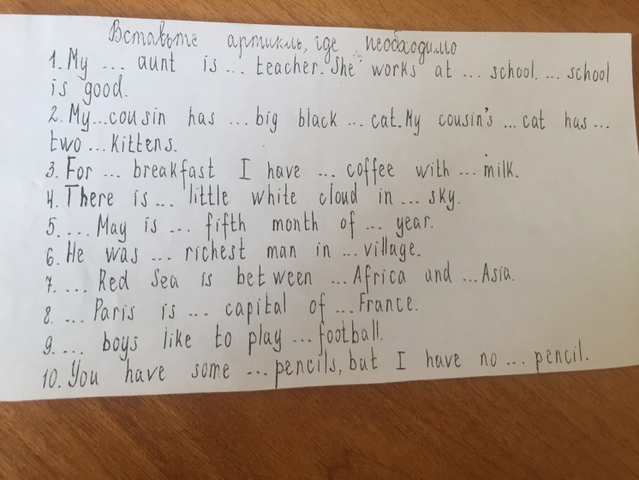 Вставьте артикль, где необходимо
1. My ... aunt is ... teacher. She works at ... school. ... school
is good.
2. My...cousin has ... big black ... cat. My cousin's ... cat has ...
two ... kittens.
3. For ... breakfast I have ... coffee with ... milk.
4. There is ... little white cloud in ... sky.
5. ... May is ... fifth month of ... year.
6. He was ... richest man in ... village.
7. ... Red Sea is between ... Africa and ... Asia.
8. ... Paris is ... capital of ... France.
9. ... boys like to play ... football.
10. You have some ... pencils, but I have no ... pencil.